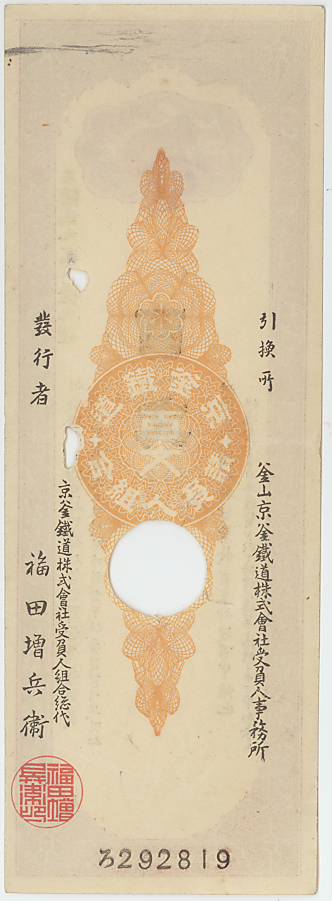 引換所
釜山京釜鐵道株式會社受負人事務所
京釜鐵道
請負人組合
發行者
京釜鐵道株式會社受負人組合総代
福田増兵衞
ろ292819